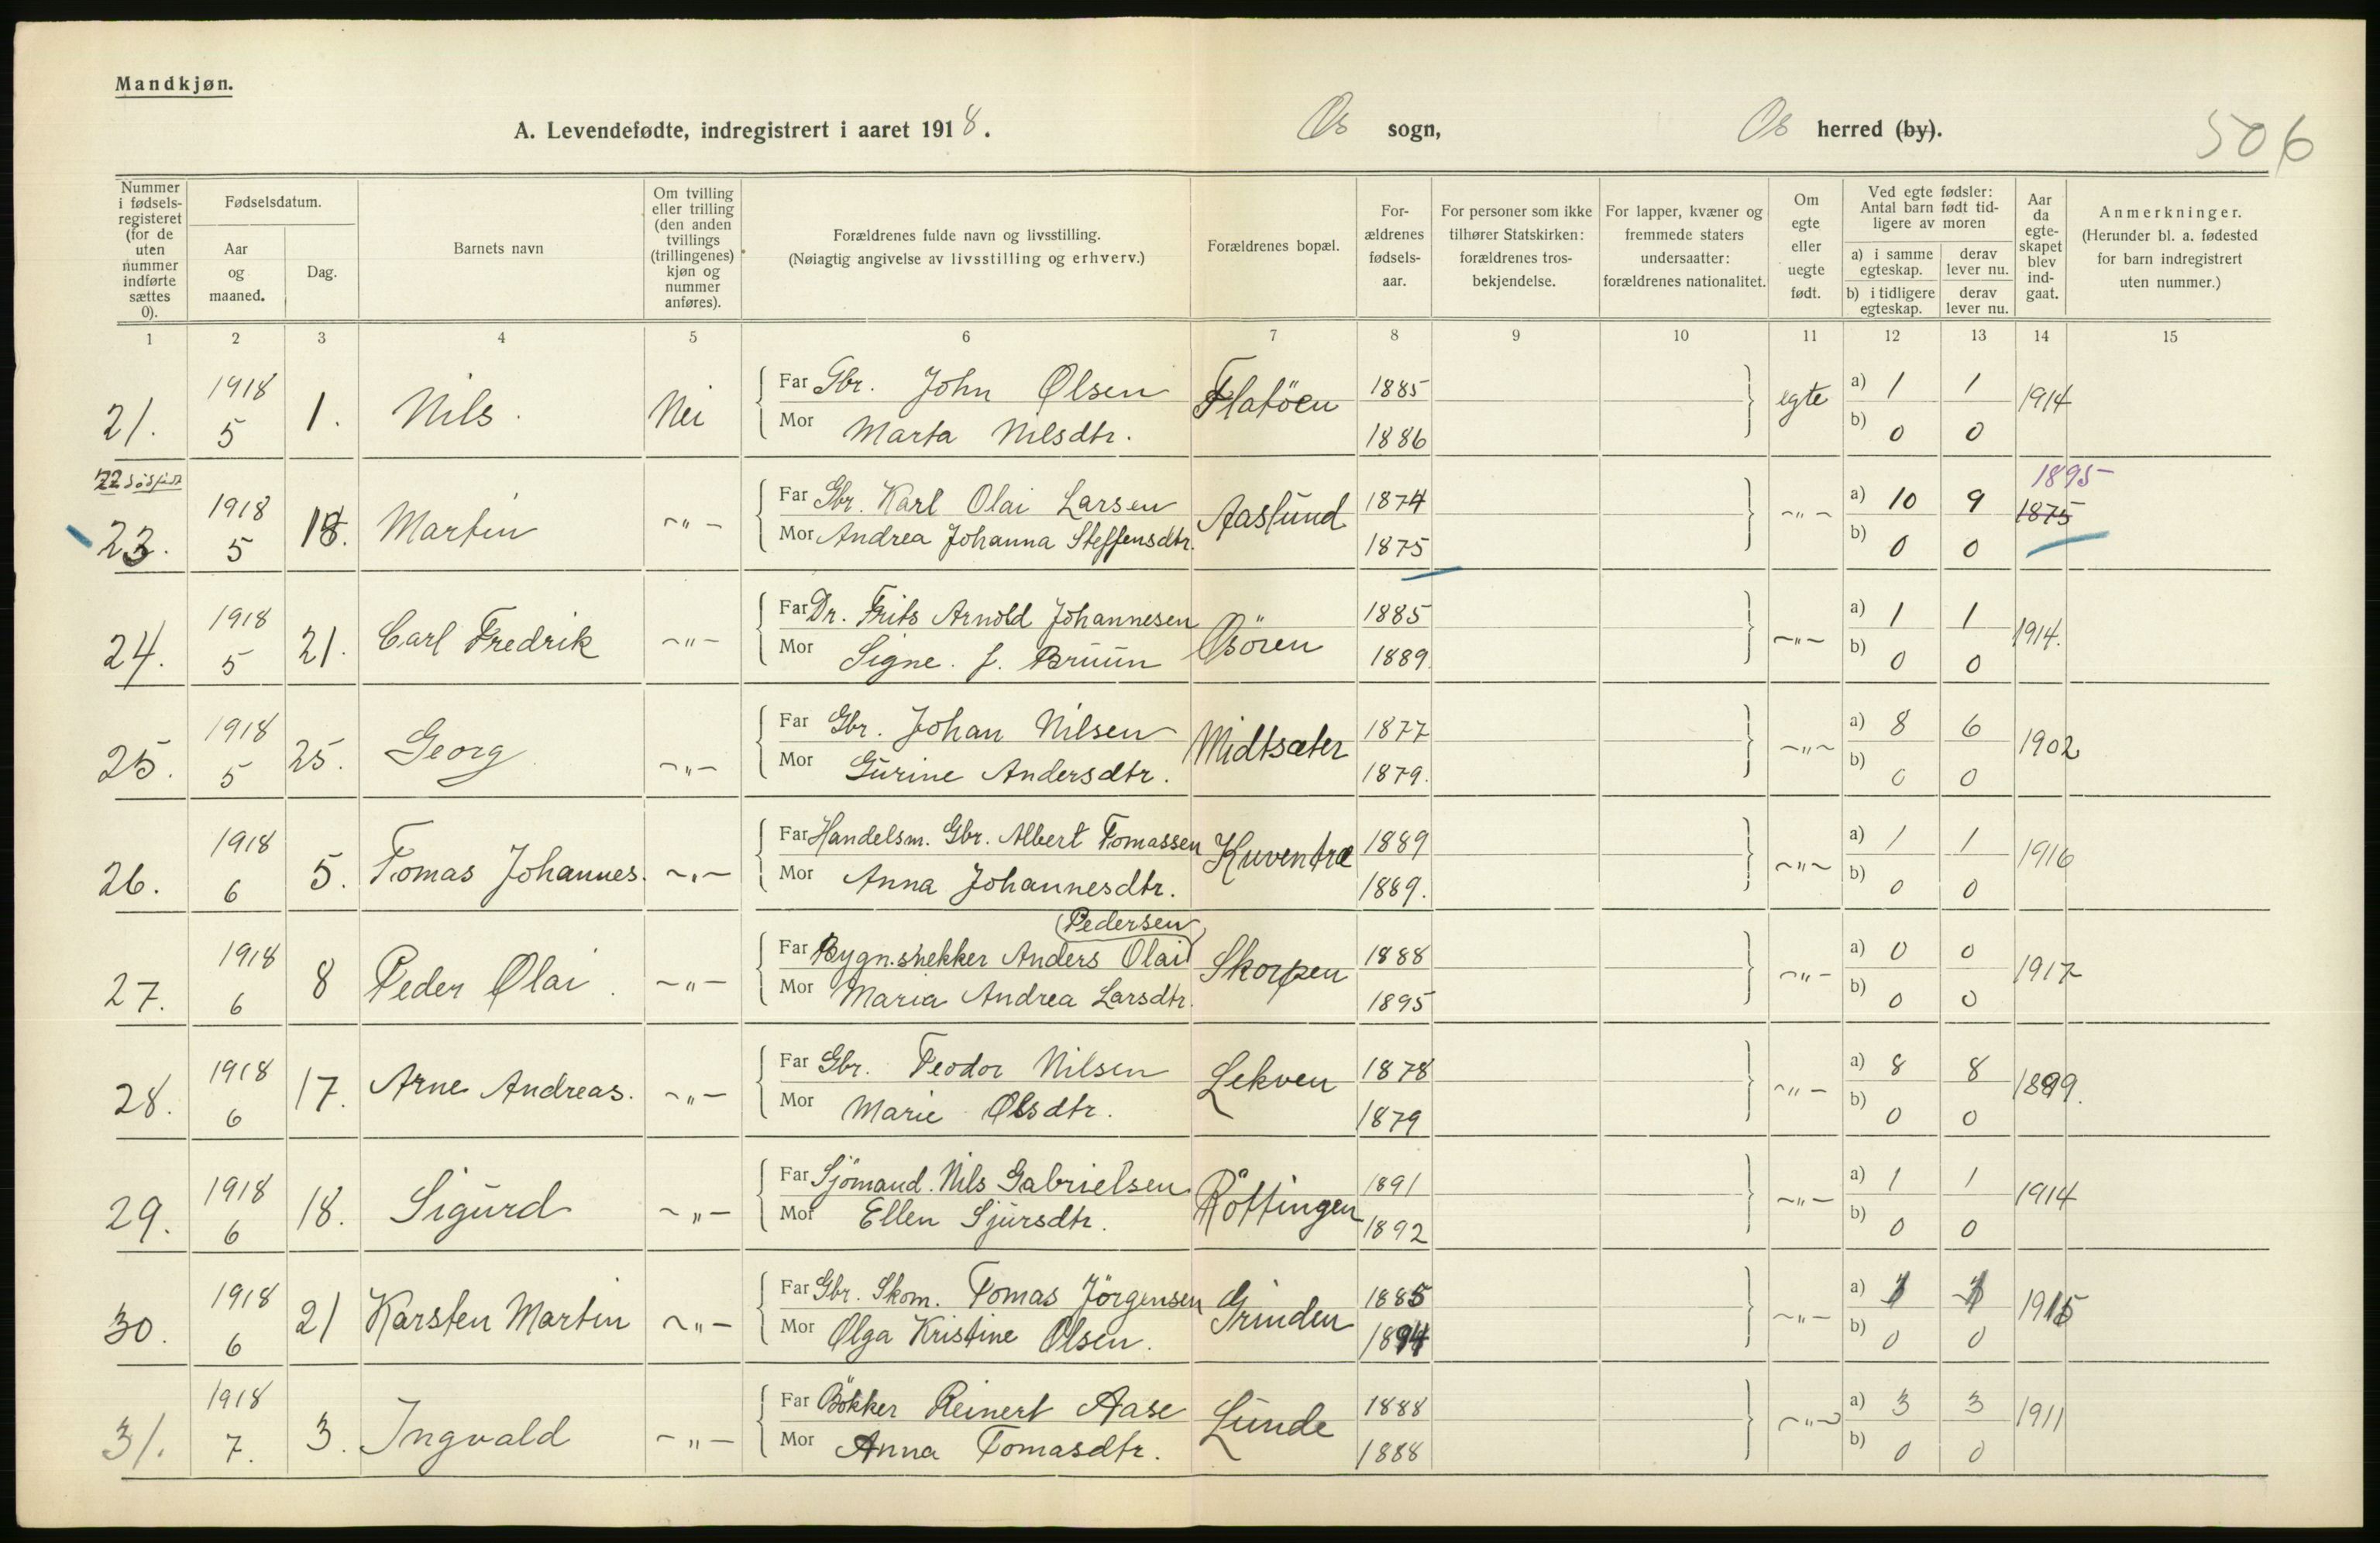 Mandkjøn.
A. Levendefødte, indregistrert i aaret 1918. Os sogn, Os herred (by). 506
Nummer i fødselsregisteret (for de uten nummer indførte sættes 0).
Fødselsdatum.
Aar og maaned.
Dag.
Barnets navn
Om tvilling eller trilling (den anden tvillings (trillingenes) kjøn og nummer anføres).
Forældrenes fulde navn og livsstilling.
(Nøiagtig angivelse av livsstilling og erhverv.)
Forældrenes bopæl.
Forældrenes fødselsaar.
For personer som ikke tilhører Statskirken: forældrenes trosbekjendelse.
For lapper, kvæner og fremmede staters undersaatter: forældrenes nationalitet.
Om egte eller uegte født.
Ved egte fødsler: Antal barn født tidligere av moren
a) i samme egteskap. derav lever nu.
b) i tidligere egteskap. derav lever nu.
Aar da egteskapet blev indgaat.
Anmerkninger.
(Herunder bl. a. fødested for barn indregistrert uten nummer.)
1 2 3 4 5 6 7 8 9 10 11 12 13 14 15
21. 1918 5 1. Nils. Nei Far Gbr. John Olsen Flatöen 1885 egte a) 1 1 1914
Mor Marta Nilsdtr. 1886 b) 0 0
22 dödfödt
23. 1918 5 18. Martin -"- Far Gbr. Karl Olai Larsen Aaslund 1874 -"- a) 10 9 1895 1875
Mor Andrea Johanna Steffensdtr. 1875 b) 0 0
24. 1918 5 21. Carl Fredrik -"- Far Dr. Frits Arnold Johannesen Osören 1885 -"- a) 1 1 1914.
Mor Signe f. Bruun 1889. b) 0 0
25. 1918 5 25. Georg -"- Far Gbr. Johan Nilsen Midtsæter 1877 -"- a) 8 6 1902
Mor Gurine Andersdtr. 1879. b) 0 0
26. 1918 6 5. Tomas Johannes. -"- Far Handelsm. Gbr. Albert Tomassen Kuventræ 1889 -"- a) 1 1 1916
Mor Anna Johannesdtr. 1889. b) 0 0
Pedersen
27. 1918 6 8 Peder Olai. -"- Far Bygn.snekker Anders Olai Skorpen 1888 -"- a) 0 0 1917
Mor Maria Andrea Larsdtr. 1895 b) 0 0
28. 1918 6 17. Arne Andreas. -"- Far Gbr. Teodor Nilsen Lekven 1878 -"- a) 8 8 1899.
Mor Marie Olsdtr. 1879 b) 0 0
29. 1918 6 18. Sigurd -"- Far Sjömand. Nils Gabrielsen Röttingen 1891 -"- a) 1 1 1914
Mor Ellen Sjursdtr. 1892 b) 0 0
30. 1918 6 21 Karsten Martin -"- Far Gbr. Skom. Tomas Jörgensen Grinden 1885 -"- a) 1 1 1915
Mor Olga Kristine Olsen. 1894 b) 0 0
31. 1918 7. 3. Ingvald -"- Far Bökker Reinert Aase Lunde 1888 -"- a) 3 3 1911
Mor Anna Tomasdtr. 1888 b) 0 0